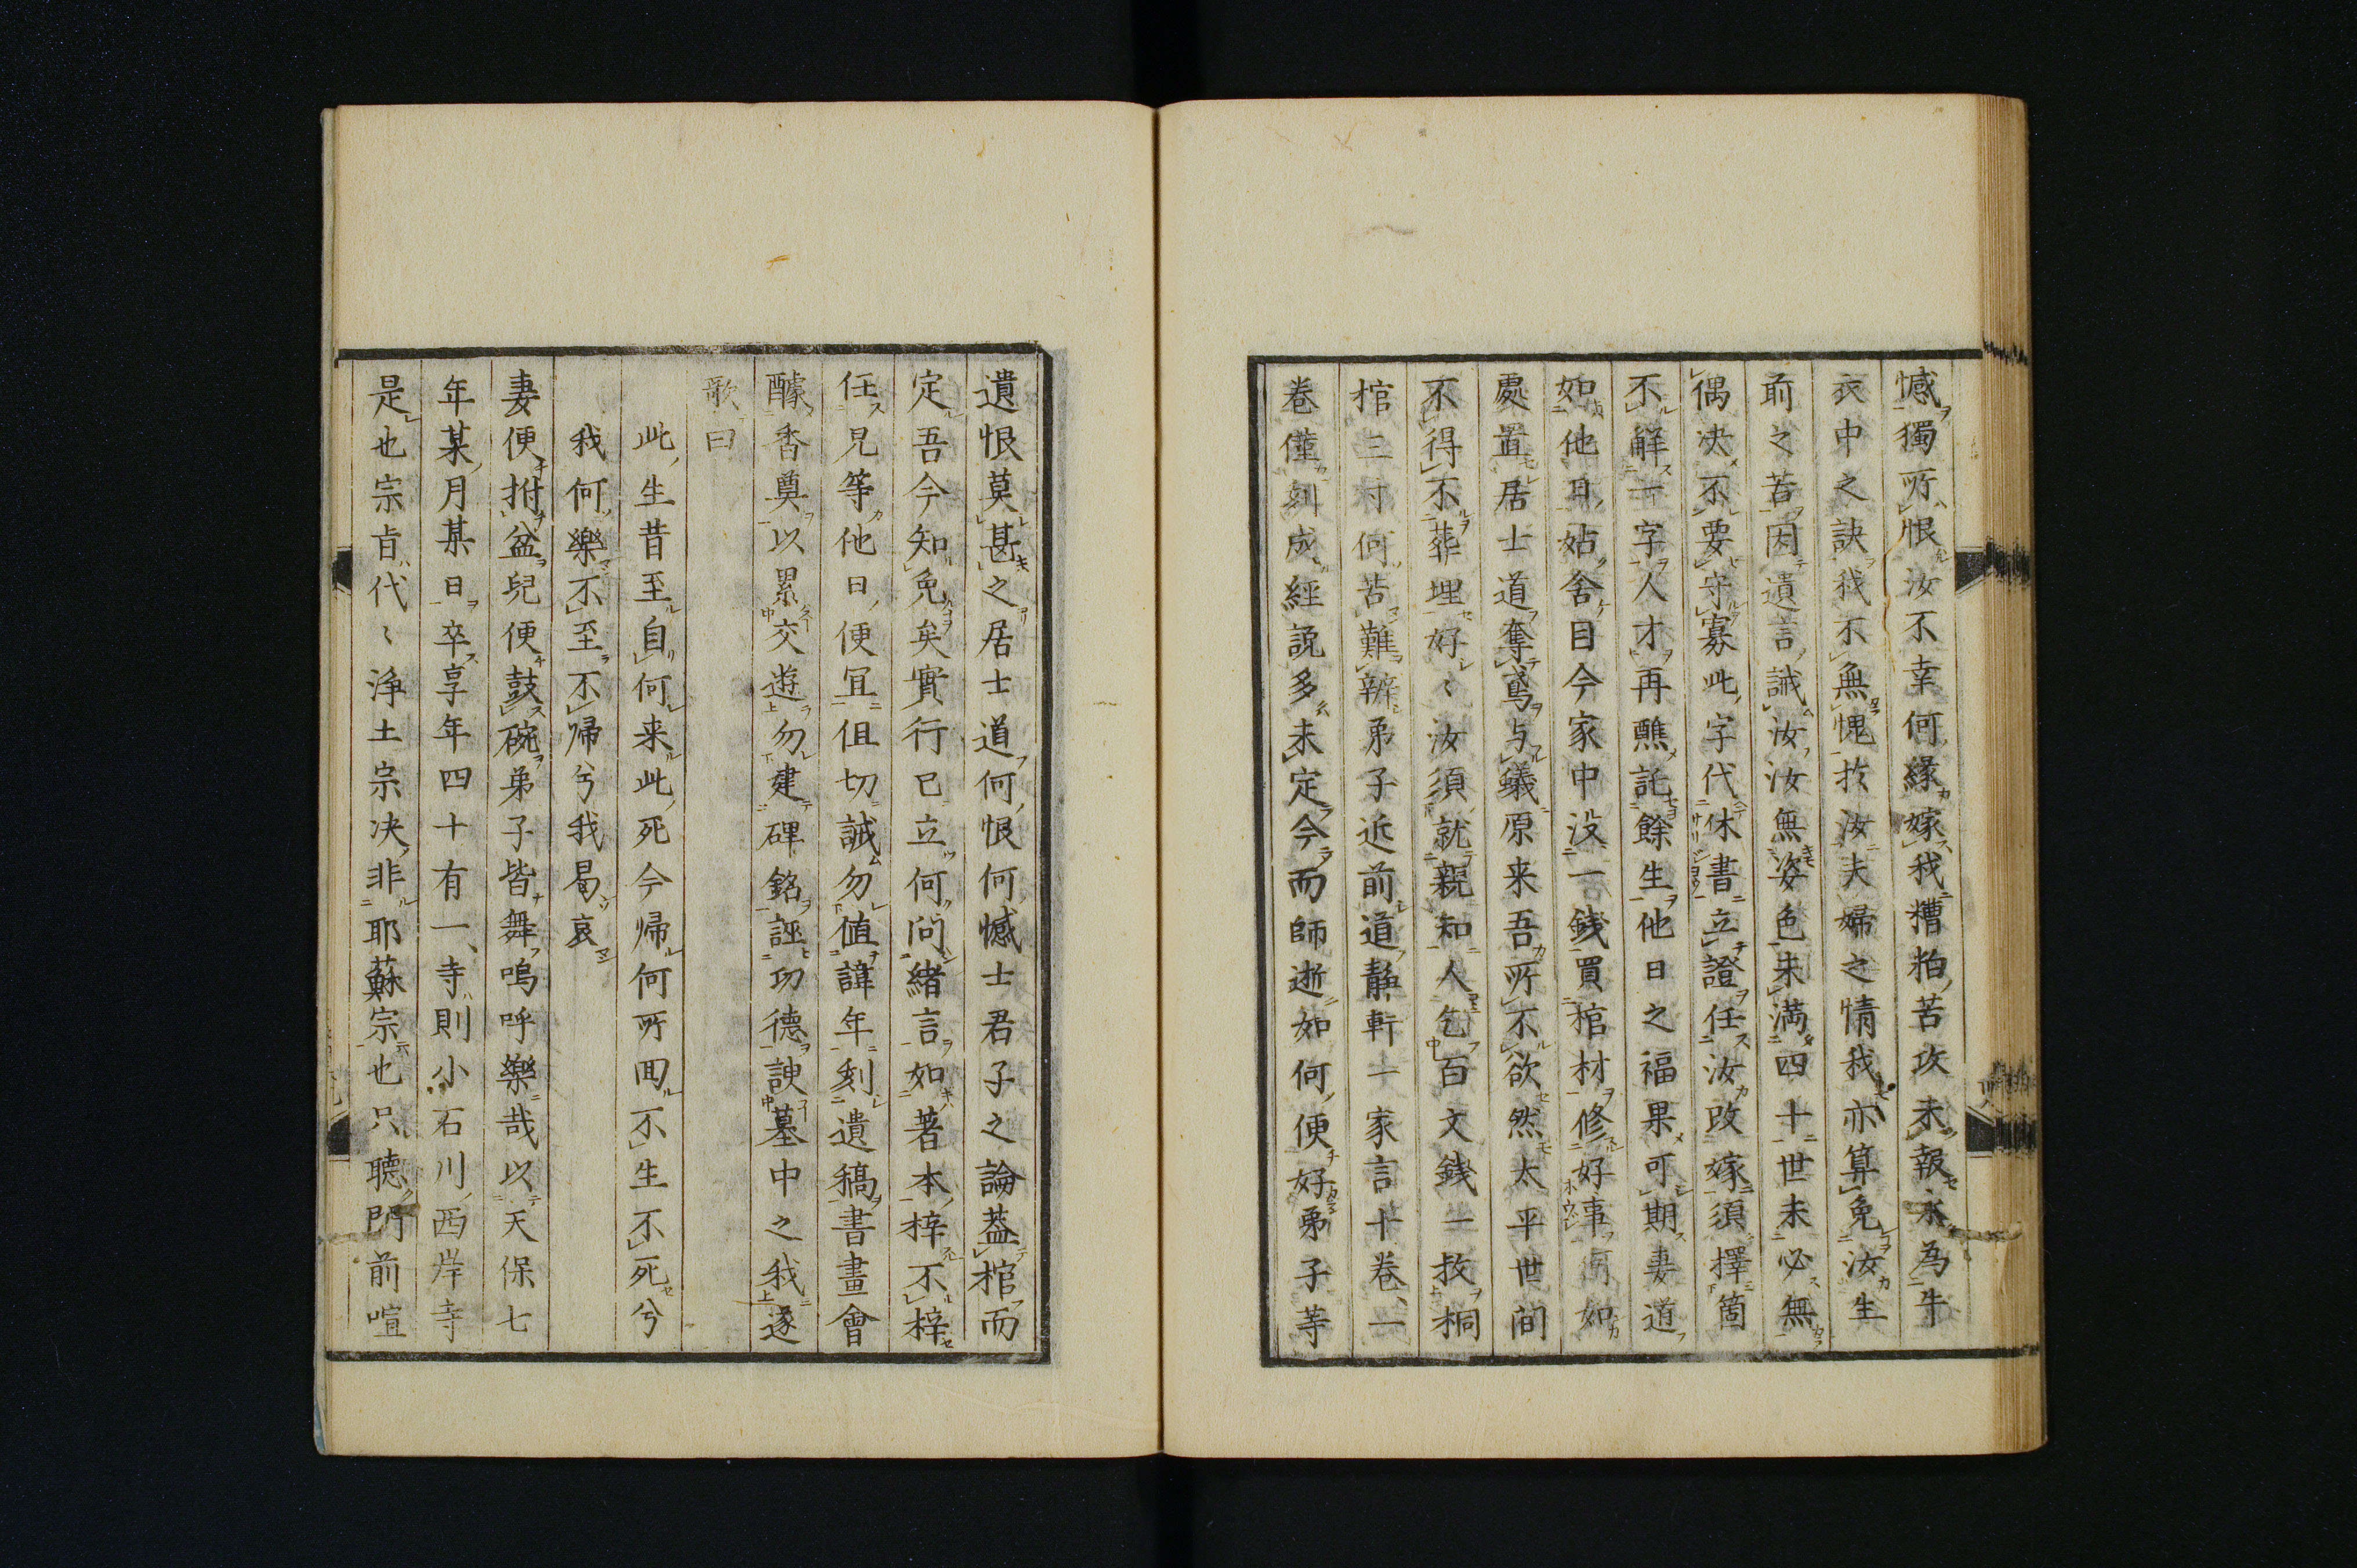 憾獨所恨汝不幸何緣嫁我糟粕苦攻未報永為牛
衣中之訣我不無愧扵汝夫婦之情我亦算免汝生
前之苦因遺言誡汝汝無姿色未滿四十世未必無
偶决不要守寡此字代休書立證任汝改嫁須擇箇
不解一字人才再醮託餘生他日之福果可期妻道
如他日姑舍目今家中没一銭買棺材修好事何如
處置居士道奪鳶与蟻原来吾所不欲然太平世間
不得不葬埋好〻汝須就親知人乞百文銭一枚桐
棺三寸何苦難辨弟子近前道靜軒一家言十巻一
巻僅刻成經説多未定今而師逝如何便好弟子等
遺恨莫甚之居士道何恨何憾士君子之論蓋棺而
定吾今知免矣實行已立何问緒言如著本梓不梓
任兄等他日便冝伹切誡勿値諱年刻遺稿書畫會
醵香奠以累交遊勿建碑銘誣功德諛墓中之我遂
歌曰
此生昔至自何来此死今帰何所囬不生不死兮
我何樂不至不帰兮我曷哀
妻便拊盆兒便鼓碗弟子皆舞嗚呼樂哉以天保七
年某月某日卒享年四十有一寺則小石川西岸寺
是也宗㫖代〻淨土宗决非耶蘇宗也只聽門前喧